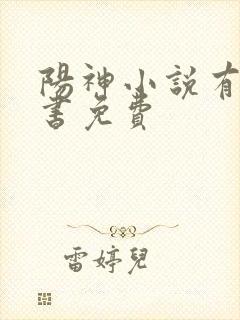 陽神小說有
書免費
雷婷兒